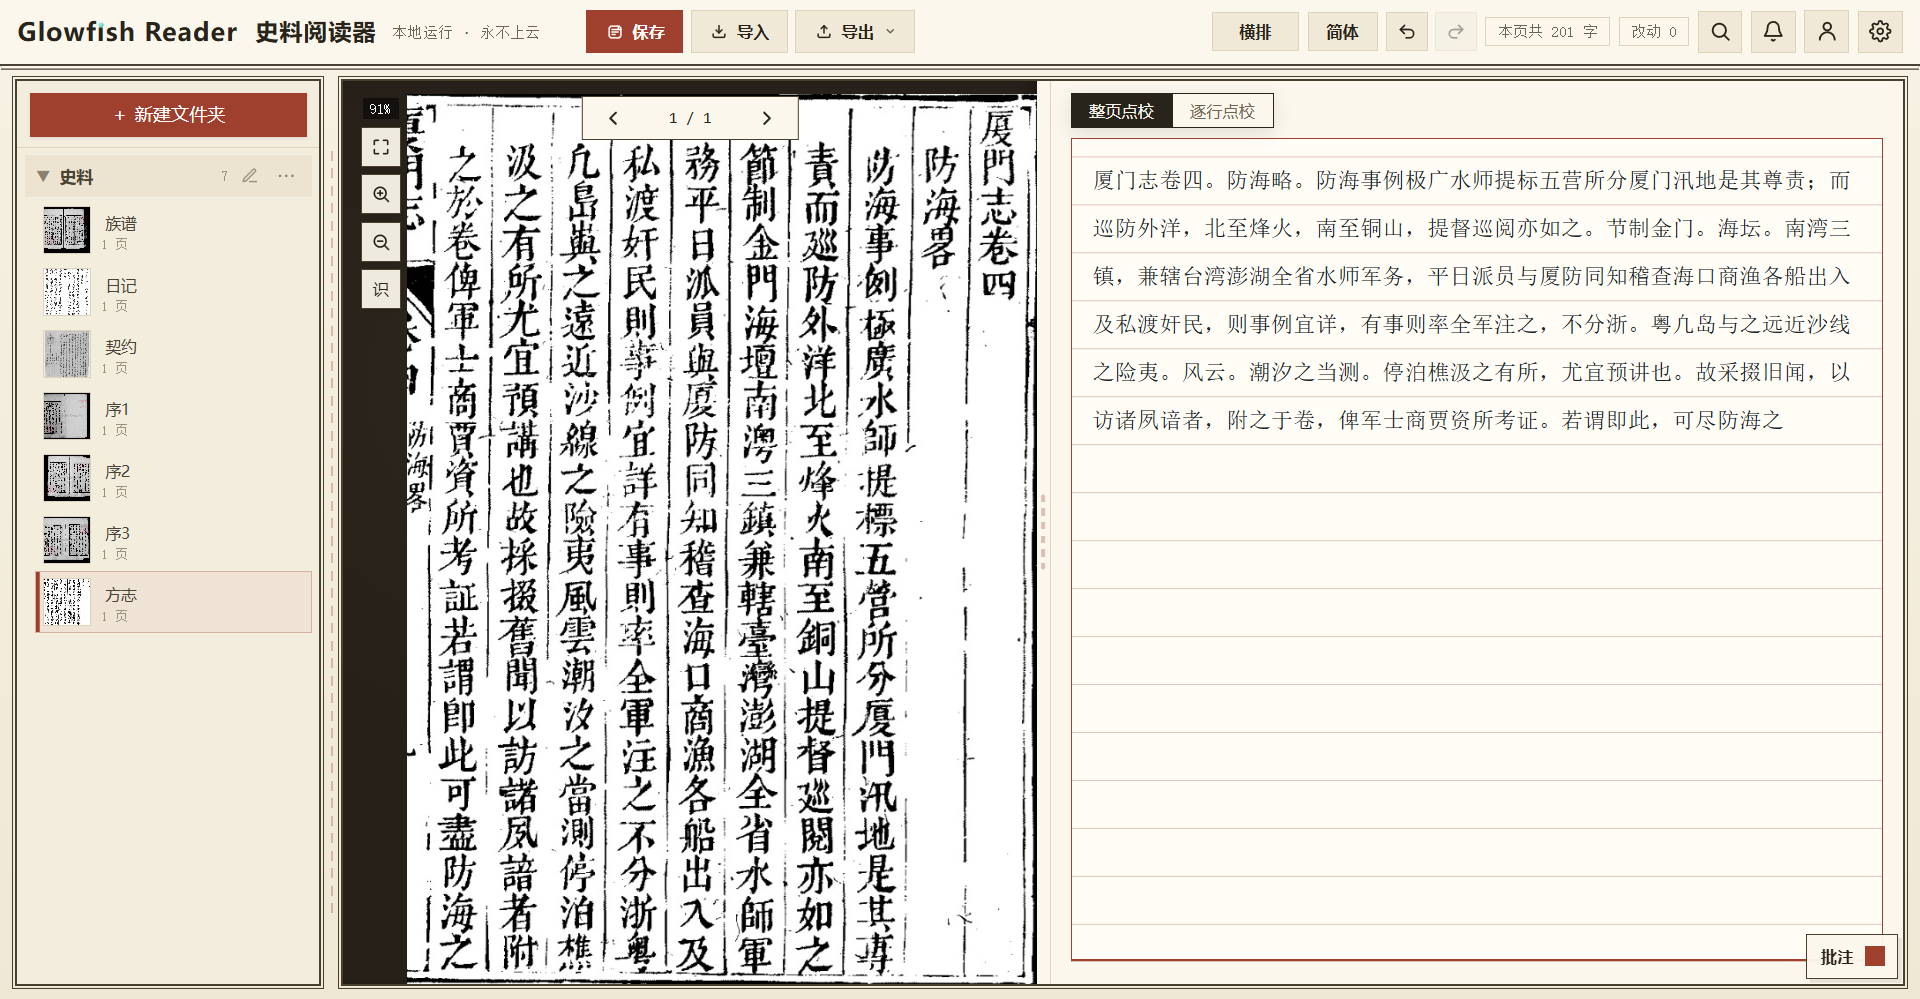 Glowfish Reader 史料阅读器 本地运行 · 永不上云
保存 导入 导出
横排 简体 本页共 201 字 改动 0
+ 新建文件夹
史料 7
族谱
1 页
日记
1 页
契约
1 页
序1
1 页
序2
1 页
序3
1 页
方志
1 页
91%
识
1 / 1
廈門志卷四
防海畧
防海事例極廣水師提標五營所分廈門汛地是其專
責而巡防外洋北至烽火南至銅山提督巡閱亦如之
節制金門海壇南澳三鎮兼轄臺灣澎湖全省水師軍
務平日派員與廈防同知稽查海口商漁各船出入及
私渡奸民則事例宜詳有事則率全軍注之不分浙粵
凢島與之遠近沙線之險夷風雲潮汐之當測停泊樵
汲之有所尤宜預講也故採掇舊聞以訪諸夙諳者附
之於卷俾軍士商賈資所考証若謂卽此可盡防海之
防海畧
整页点校 逐行点校
厦门志卷四。防海略。防海事例极广水师提标五营所分厦门汛地是其尊责；而
巡防外洋，北至烽火，南至铜山，提督巡阅亦如之。节制金门。海坛。南湾三
镇，兼辖台湾澎湖全省水师军务，平日派员与厦防同知稽查海口商渔各船出入
及私渡奸民，则事例宜详，有事则率全军注之，不分浙。粤凢岛与之远近沙线
之险夷。风云。潮汐之当测。停泊樵汲之有所，尤宜预讲也。故采掇旧闻，以
访诸夙谙者，附之于卷，俾军士商贾资所考证。若谓即此，可尽防海之
批注